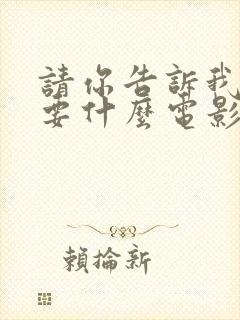 請你告訴我
要什麼電影
賴掄新